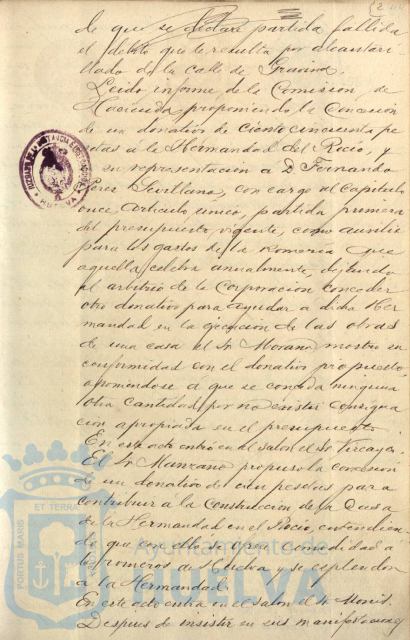 de que se declare partida fallida
el débito que le resulta por alcantari-
llado de la calle de Gravina.
Leido informe de la Comision de
Hacienda, proponiendo la Concesion
de un donativo de Ciento cincuenta pe
setas á la Hermandad del Rocio, y
en su representacion a D. Fernando
Sevillano, con cargo al Capitulo
once, articulo unico, partida primera
del presupuesto vigente, como auxilio
para los gastos de la Romeria que
aquella celebra anualmente, dejando
al arbitrio de la Corporacion conceder
otro donativo para ayudar a dicha Her
mandad en la ejecucion de las obras
de una casa el Sr. Morano mostró su
conformidad con el donativo propuesto,
oponiéndose á que se conceda ninguna
otra cantidad, por no existir consigna
cion apropiada en el presupuesto.
En este acto entró en el salon el Sr. Vizcaya.
El Sr. Manzano propuso la concesion
de un donativo de cien pesetas para
contribuir á la Construccion de la Casa
de la Hermandad en el Rocio, entendien
do que con ello se dará comodidad á
los romeros de Huelva y se
á la Hermandad.
En este acto entra en el salon el Sr. Monis.
Despues de insistir en sus manifestaciones
HUELVA
ET TERRA
PORTUS MARIS
Ayuntamiento de
HUELVA